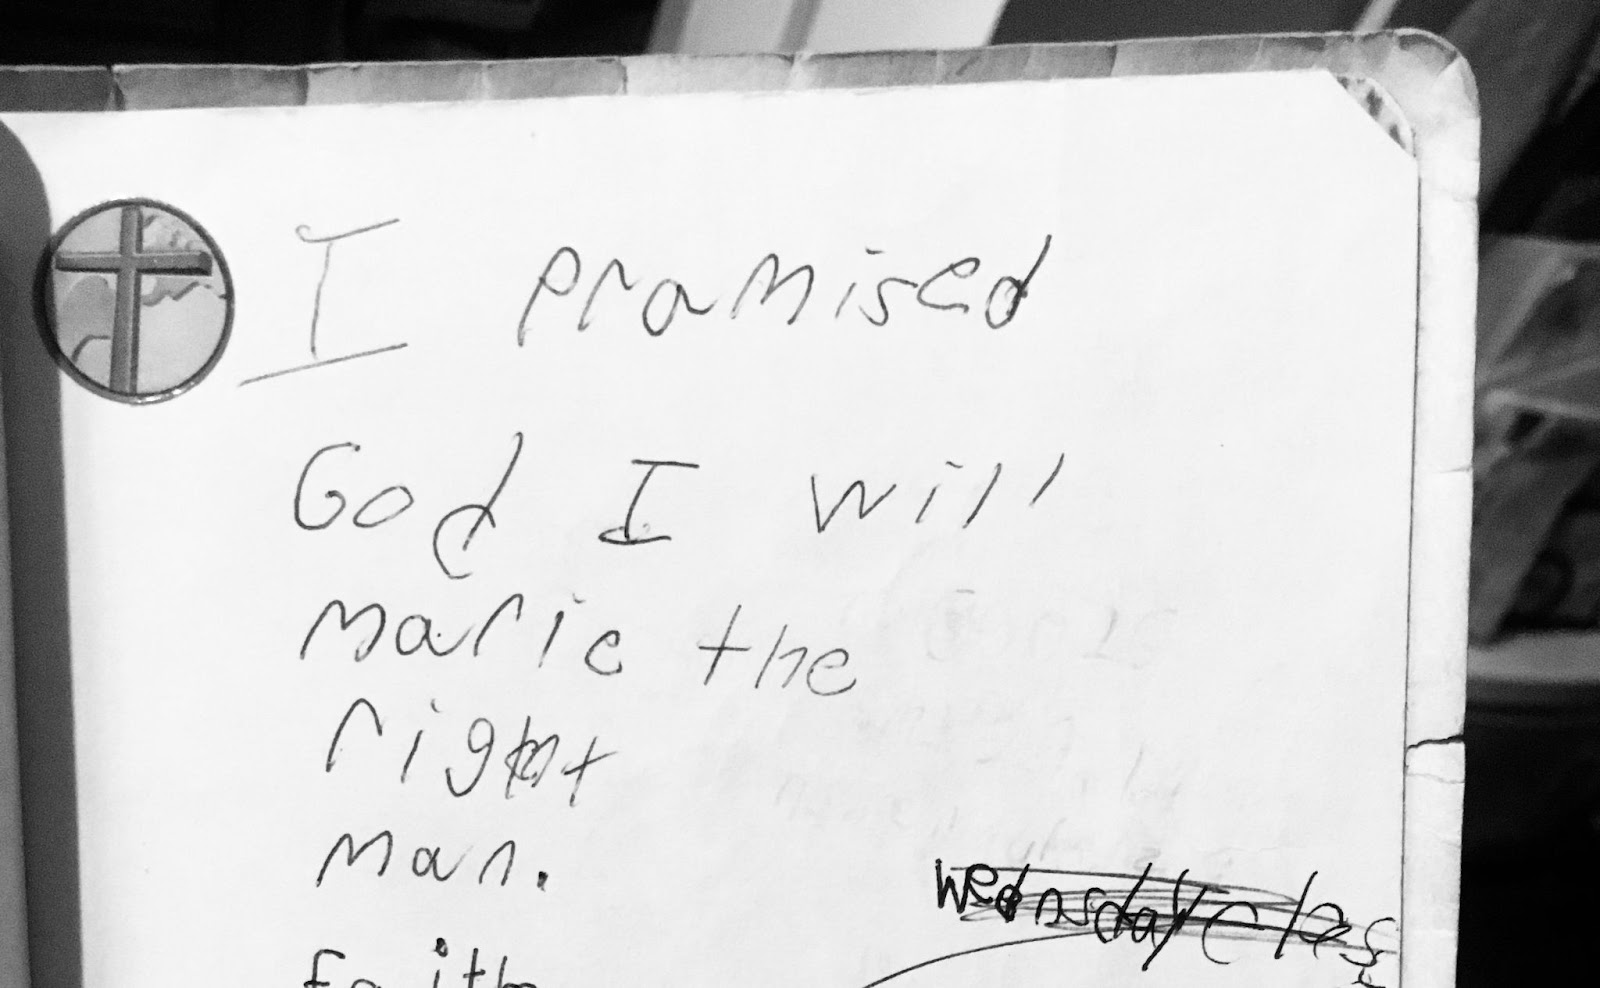 I promised
God I will
marie the
right
man.
Wednsday class
faith